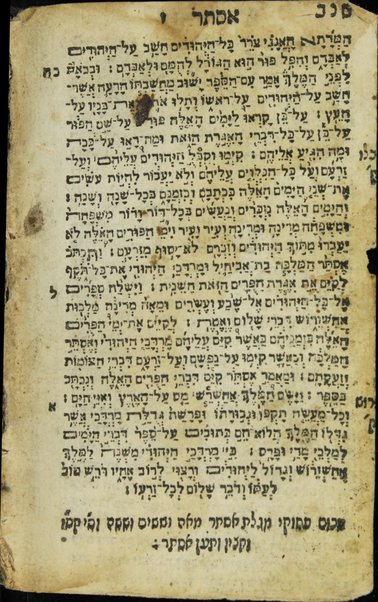 אסתר י
הַמְּדָתָא הָאֲגָגִי צֹרֵר כָּל־הַיְּהוּדִים חָשַׁב עַל־הַיְּהוּדִים
לְאַבְּדָם וְהִפִּל פּוּר הוּא הַגּוֹרָל לְהֻמָּם וּלְאַבְּדָם׃ וּבְבֹאָהּ כה
לִפְנֵי הַמֶּלֶךְ אָמַר עִם־הַסֵּפֶר יָשׁוּב מַחֲשַׁבְתּוֹ הָרָעָה אֲשֶׁר־
חָשַׁב עַל־הַיְּהוּדִים עַל־רֹאשׁוֹ וְתָלוּ אֹתוֹ וְאֶת־בָּנָיו עַל־
הָעֵץ׃ עַל־כֵּן קָרְאוּ לַיָּמִים הָאֵלֶּה פוּרִים עַל־שֵׁם הַפּוּר
עַל־כֵּן עַל־כָּל־דִּבְרֵי הָאִגֶּרֶת הַזֹּאת וּמָה־רָאוּ עַל־כָּכָה
וּמָה הִגִּיעַ אֲלֵיהֶם׃ קִיְּמוּ וְקִבְּלֻ הַיְּהוּדִים עֲלֵיהֶם וְעַל־
זַרְעָם וְעַל כָּל־הַנִּלְוִים עֲלֵיהֶם וְלֹא יַעֲבוֹר לִהְיוֹת עֹשִׂים
אֶת־שְׁנֵי הַיָּמִים הָאֵלֶּה כִּכְתָבָם וְכִזְמַנָּם בְּכָל־שָׁנָה וְשָׁנָה׃
וְהַיָּמִים הָאֵלֶּה נִזְכָּרִים וְנַעֲשִׂים בְּכָל־דּוֹר וָדוֹר מִשְׁפָּחָה
וּמִשְׁפָּחָה מְדִינָה וּמְדִינָה וְעִיר וָעִיר וִימֵי הַפּוּרִים הָאֵלֶּה לֹא
יַעַבְרוּ מִתּוֹךְ הַיְּהוּדִים וְזִכְרָם לֹא־יָסוּף מִזַּרְעָם׃ וַתִּכְתֹּב
אֶסְתֵּר הַמַּלְכָּה בַת־אֲבִיחַיִל וּמָרְדֳּכַי הַיְּהוּדִי אֶת־כָּל־תֹּקֶף
לְקַיֵּם אֵת אִגֶּרֶת הַפֻּרִים הַזֹּאת הַשֵּׁנִית׃ וַיִּשְׁלַח סְפָרִים
אֶל־כָּל־הַיְּהוּדִים אֶל־שֶׁבַע וְעֶשְׂרִים וּמֵאָה מְדִינָה מַלְכוּת ל
אֲחַשְׁוֵרוֹשׁ דִּבְרֵי שָׁלוֹם וֶאֱמֶת׃ לְקַיֵּם אֶת־יְמֵי הַפֻּרִים
הָאֵלֶּה בִּזְמַנֵּיהֶם כַּאֲשֶׁר קִיַּם עֲלֵיהֶם מָרְדֳּכַי הַיְּהוּדִי וְאֶסְתֵּר
הַמַּלְכָּה וְכַאֲשֶׁר קִיְּמוּ עַל־נַפְשָׁם וְעַל־זַרְעָם דִּבְרֵי הַצֹּמוֹת
וְזַעֲקָתָם׃ וּמַאֲמַר אֶסְתֵּר קִיַּם דִּבְרֵי הַפֻּרִים הָאֵלֶּה וְנִכְתָּב
בַּסֵּפֶר׃ וַיָּשֶׂם הַמֶּלֶךְ אֲחַשְׁרֹשׁ מַס עַל־הָאָרֶץ וְאִיֵּי הַיָּם׃
וְכָל־מַעֲשֵׂה תָקְפּוֹ וּגְבוּרָתוֹ וּפָרָשַׁת גְּדֻלַּת מָרְדֳּכַי אֲשֶׁר א
גִּדְּלוֹ הַמֶּלֶךְ הֲלוֹא־הֵם כְּתוּבִים עַל־סֵפֶר דִּבְרֵי הַיָּמִים
לְמַלְכֵי מָדַי וּפָרָס׃ כִּי מָרְדֳּכַי הַיְּהוּדִי מִשְׁנֶה לַמֶּלֶךְ
אֲחַשְׁוֵרוֹשׁ וְגָדוֹל לַיְּהוּדִים וְרָצוּי לְרֹב אֶחָיו דֹּרֵשׁ טוֹב
לְעַמּוֹ וְדֹבֵר שָׁלוֹם לְכָל־זַרְעוֹ׃
סכום פסוקי מגלת אסתר מאה וששים וששה
ותען אסתר